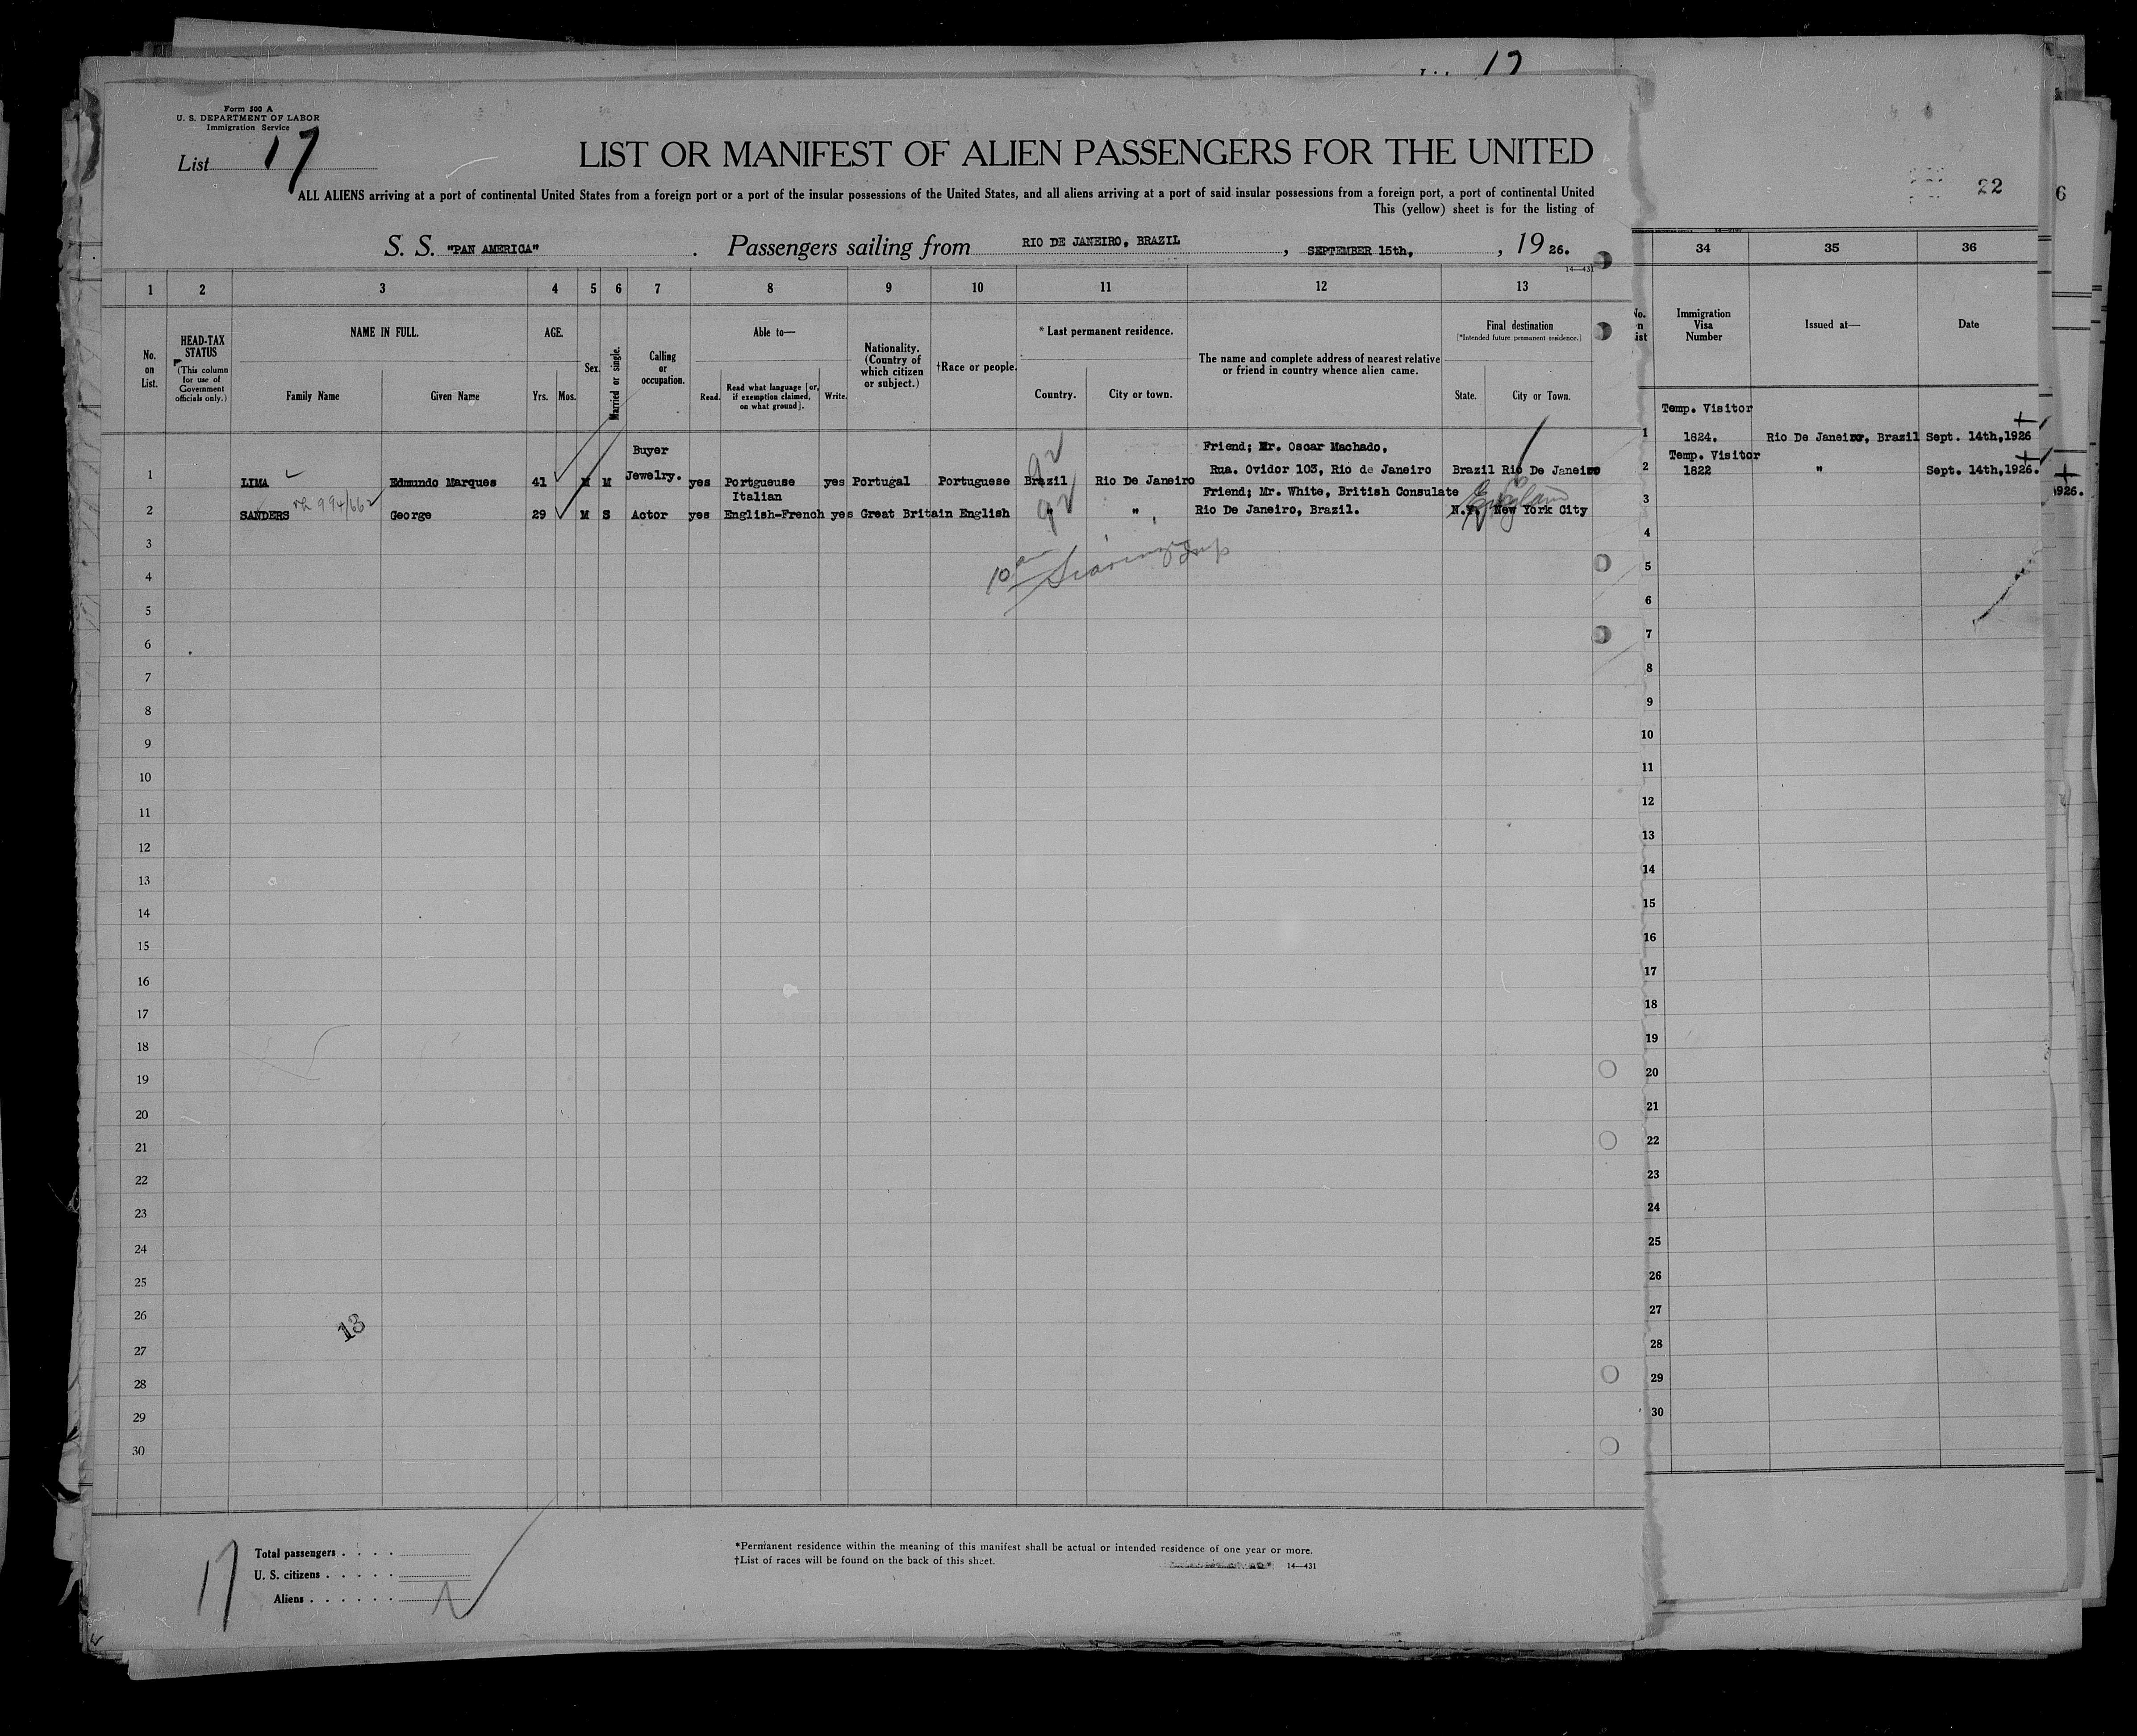 17
Form 500 A
U. S. DEPARTMENT OF LABOR
Immigration Service
List 17
LIST OR MANIFEST OF ALIEN PASSENGERS FOR THE UNITED
ALL ALIENS arriving at a port of continental United States from a foreign port or a port of the insular possessions of the United States, and all aliens arriving at a port of said insular possessions from a foreign port, a port of continental United
This (yellow) sheet is for the listing of
S. S. "PAN AMERICA". Passengers sailing from RIO DE JANEIRO, BRAZIL, SEPTEMBER 15th, , 1926.
14—431
1 2 3 4 5 6 7 8 9 10 11 12 13
No. on List.
HEAD-TAX STATUS
(This column for use of Government officials only.)
NAME IN FULL.
Family Name Given Name
AGE.
Yrs. Mos.
Sex.
Married or single.
Calling or occupation.
Able to—
Read. Read what language [or, if exemption claimed, on what ground]. Write.
Nationality. (Country of which citizen or subject.)
†Race or people.
*Last permanent residence.
Country. City or town.
The name and complete address of nearest relative or friend in country whence alien came.
Final destination
(*Intended future permanent residence.)
State. City or Town.
1 LIMA Edmundo Marques 41 M M Buyer Jewelry. yes Portgueuse Italian yes Portugal Portuguese Brazil Rio De Janeiro Friend; Mr. Oscar Machado, Rua. Ovidor 103, Rio de Janeiro Brazil Rio De Janeiro
2 SANDERS 994/662 George 29 M S Actor yes English-French yes Great Britain English " " Friend; Mr. White, British Consulate Rio De Janeiro, Brazil. N.Y. New York City
England
3
4
5
6
7
8
9
10
11
12
13
14
15
16
17
18
19
20
21
22
23
24
25
26
27
28
29
30
13
17
Total passengers
U. S. citizens
Aliens
*Permanent residence within the meaning of this manifest shall be actual or intended residence of one year or more.
†List of races will be found on the back of this sheet.
14—431
22
6
34 35 36
Immigration Visa Number
Issued at—
Date
1 Temp. Visitor 1824. Rio De Janeiro, Brazil Sept. 14th,1926
2 Temp. Visitor 1822 " Sept. 14th,1926.
1926.
3
4
5
6
7
8
9
10
11
12
13
14
15
16
17
18
19
20
21
22
23
24
25
26
27
28
29
30